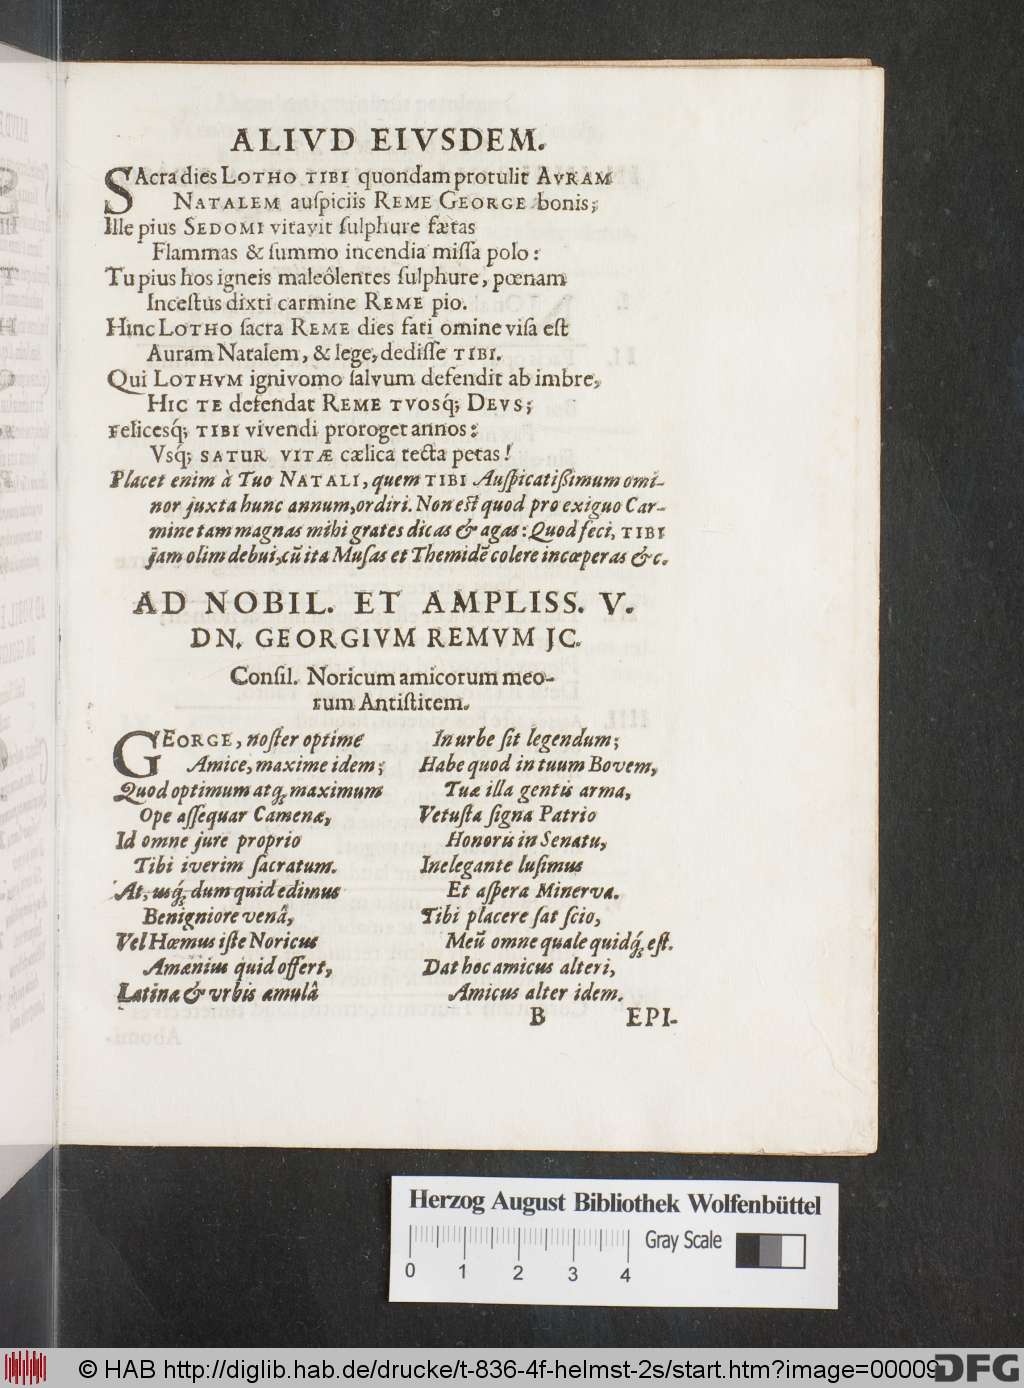 ALIVD EIVSDEM.
SAcra dies LOTHO TIBI quondam protulit AVRAM
NATALEM auſpiciis REME GEORGE bonis;
Ille pius SEDOMI vitavit ſulphure fætas
Flammas & ſummo incendia miſſa polo:
Tu pius hos igneis maleôlentes ſulphure, pœnam
Inceſtus dixti carmine REME pio.
Hinc LOTHO ſacra REME dies fati omine viſa eſt
Auram Natalem, & lege, dediſſe TIBI.
Qui LOTHVM ignivomo ſalvum defendit ab imbre,
HIC TE defendat REME TVOSq́; DEVS;
Felicesq́; TIBI vivendi proroget annos:
Vsq́; SATUR VITÆ cælica tecta petas!
Placet enim à Tuo NATALI, quem TIBI Auſpicatiſſimum omi-
nor juxta hunc annum, ordiri. Non eſt quod pro exiguo Car-
mine tam magnas mihi grates dicas & agas: Quod feci, TIBI
jam olim debui, cũ ita Muſas et Themidẽ colere incœperas &c.
AD NOBIL. ET AMPLISS. V.
DN. GEORGIVM REMVM JC.
Conſil. Noricum amicorum meo-
rum Antiſtitem.
GEORGE, noſter optime
Amice, maxime idem;
Quod optimum atq́; maximum
Ope aſſequar Camenæ,
Id omne jure proprio
Tibi iverim ſacratum.
At, usq́; dum quid edimus
Benigniore venâ,
Vel Hæmus iſte Noricus
Amænius quid offert,
Latina & vrbis æmulâ
In urbe ſit legendum;
Habe quod in tuum Bovem,
Tuæ illa gentis arma,
Vetuſta ſigna Patrio
Honoris in Senatu,
Inelegante luſimus
Et aſpera Minerva.
Tibi placere ſat ſcio,
Meũ omne quale quidq́; eſt.
Dat hoc amicus alteri,
Amicus alter idem.
B EPI-
Herzog August Bibliothek Wolfenbüttel
Gray Scale
0 1 2 3 4
© HAB http://diglib.hab.de/drucke/t-836-4f-helmst-2s/start.htm?image=00009
DFG